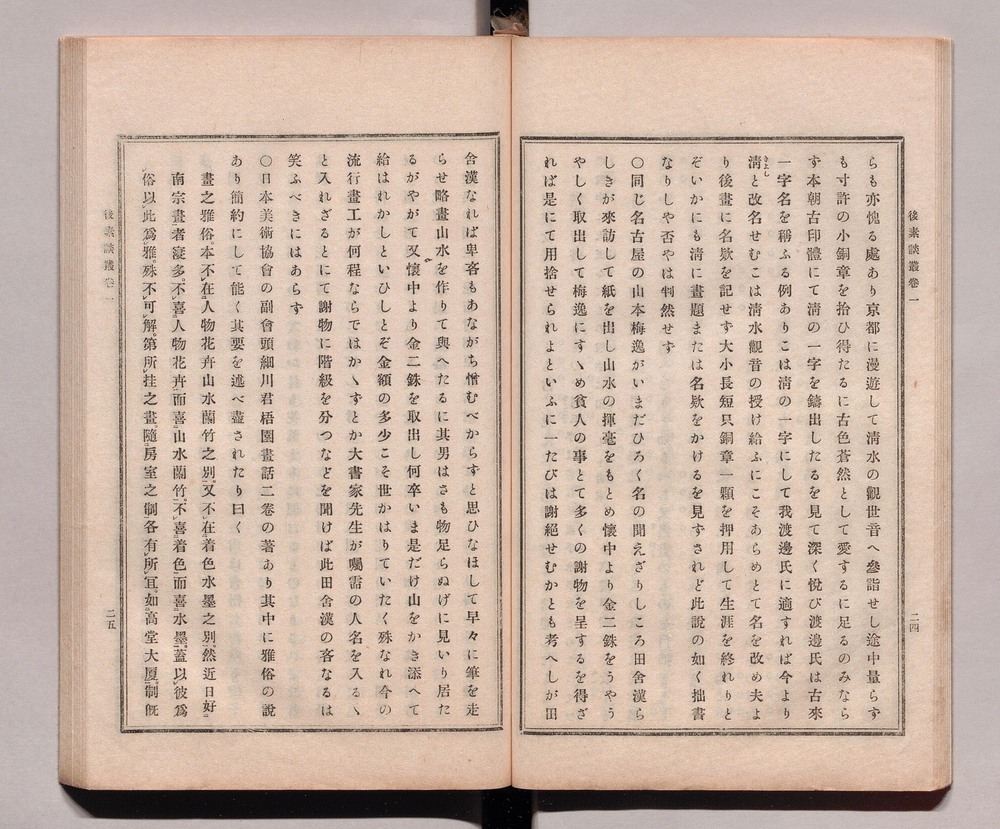 後素談叢卷一
二四
らも亦愧る處あり京都に漫遊して清水の觀世音へ參詣せし途中量らず
も寸許の小銅章を拾ひ得たるに古色蒼然として愛するに足るのみなら
ず本朝古印體にて淸の一字を鑄出したるを見て深く悅び渡邊氏は古來
一字名を稱ふる例ありこは淸の一字にして我渡邊氏に適すれば今より
淸と改名せむこは淸水觀音の授け給ふにこそあらめとて名を改め夫よ
きよし
り後畫に名欵を記せず大小長短只銅章一顆を押用して生涯を終れりと
ぞいかにも淸に畫題または名欵をかけるを見ずされど此說の如く拙書
なりしや否やは判然せず
〇同じ名古屋の山本梅逸がいまだひろく名の聞えざりしころ田舍漢ら
しきが來訪して紙を出し山水の揮毫をもとめ懷中より金二銖をうやう
やしく取出して梅逸にすゝめ貧人の事とて多くの謝物を呈するを得ざ
れば是にて用捨せられよといふに一たびは謝絕せむかとも考へしが田
舍漢なれば卑客もあながち憎むべからずと思ひなほして早々に筆を走
らせ略畫山水を作りて與へたるに其男はさも物足らぬげに見いり居た
るがやがて又懷中より金二銖を取出し何卒いま是だけ山をかき添へて
給はれかしといひしとぞ金額の多少こそ世かはりていたく殊なれ今の
流行畫工が何程ならではかゝずとか大書家先生が囑需の人名を入るゝ
と入れざるとにて謝物に階級を分つなどを聞けば此田舍漢の客なるは
笑ふべきにはあらず
〇日本美術協會の副會頭細川君梧園畫話二卷の著あり其中に雅俗の說
あり簡約にして能く其要を述べ盡されたり曰く
畫之雅俗。本不在人物花卉山水蘭竹之別。又不在着色水墨之別。然近日好
南宗畫者寖多。不喜人物花卉。而喜山水蘭竹。不喜着色。而喜水墨。蓋以彼爲
俗以此爲雅。殊不可解。第所挂之畫。隨房室之制。各有所宜。如高堂大厦。制旣
後素談叢卷一
二五